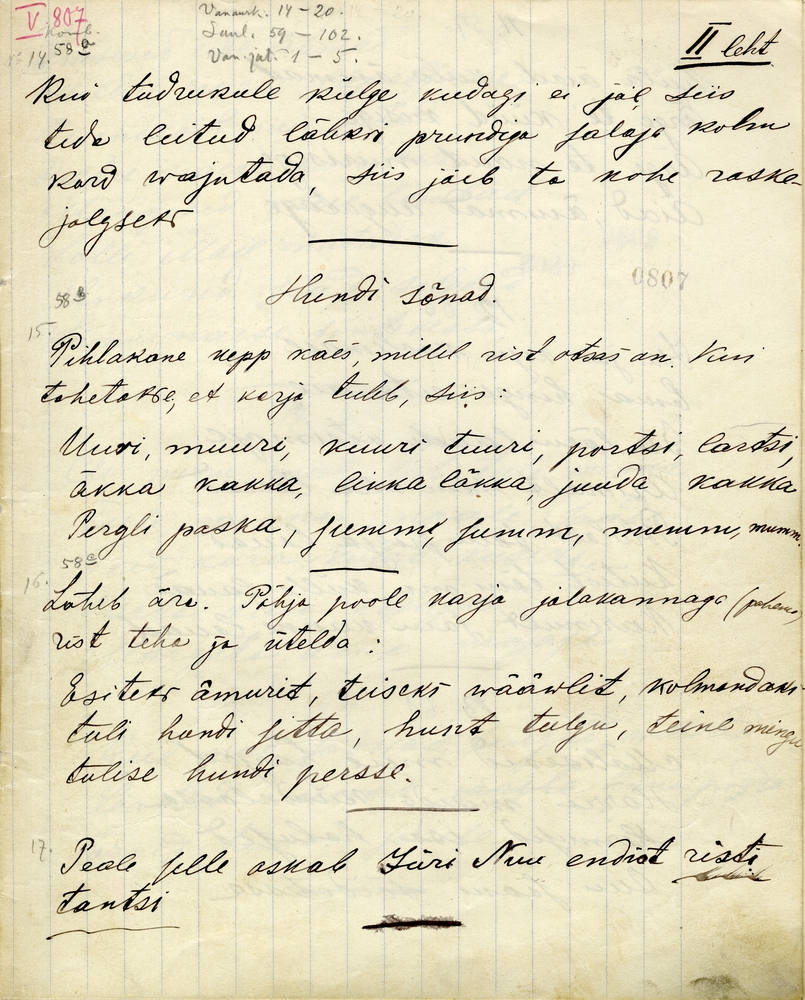 V 807
Vanausk. 14 – 20.
Komb.
Laul. 59 – 102.
№ 14. 58 a
Van. jut. 1 – 5.
II leht
Kui tüdrukule külge kudagi ei jää siis
teda leitud lähkri prundiga salaja kolm
kord wajutada, siis jääb ta kohe raske-
jalgseks
0807
58 b
Hundi sõnad.
15.
Pihlakane kepp käes, millel rist otsas on. Kui
tahetakse, et karja tuleb, siis:
Uuri, muuri, kuuri tuuri, portsi, lartsi,
äkka kakka, likka läkka, juuda kakka
Pergli paska, summi, summ, mumm, mumm.
58 c
16.
Läheb ära. Põhja poole karja jalakannaga (pahema)
rist teha ja ütelda:
Esiteks ämurit, teiseks wääwlit, kolmandaks
tuli hundi sitta, hunt tulgu, teine mingu
tulise hundi persse.
17.
Peale selle oskab Jüri Nuu endist risti
tantsi